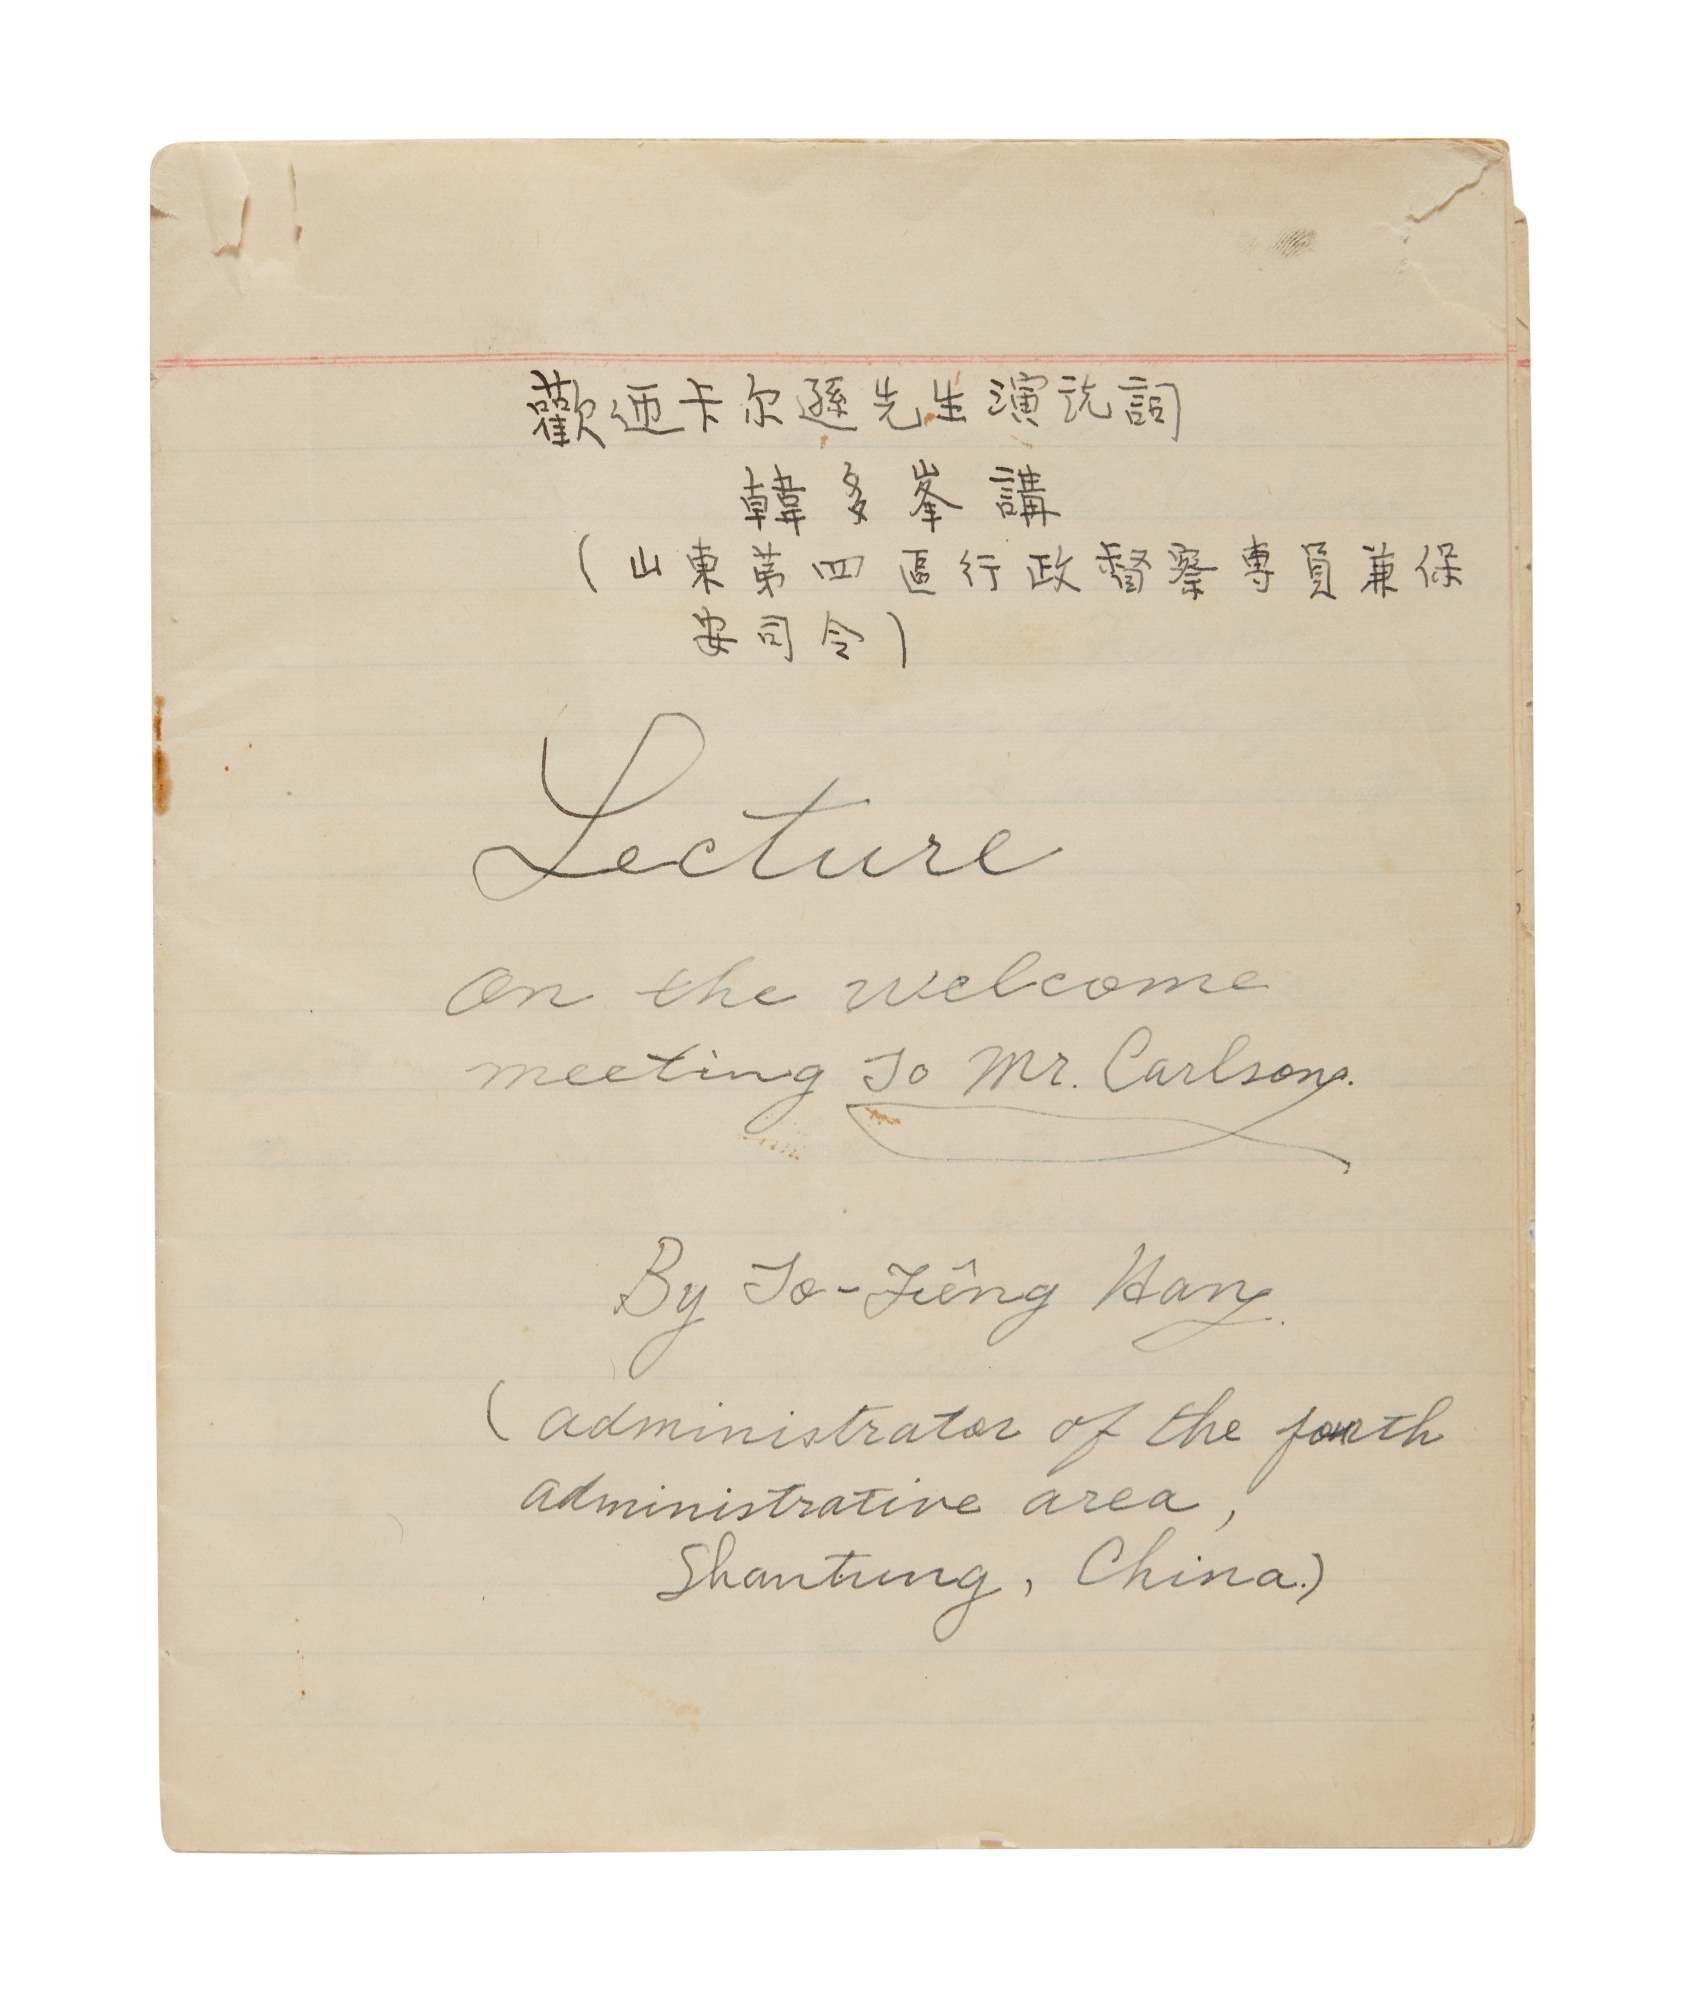 歡迎卡尔遜先生演說詞
韓多峯講
(山東第四區行政督察專員兼保
安司令)
Lecture
on the welcome
meeting To Mr. Carlson.
By To-Fêng Han.
(administrator of the fourth
administrative area,
Shantung, China.)